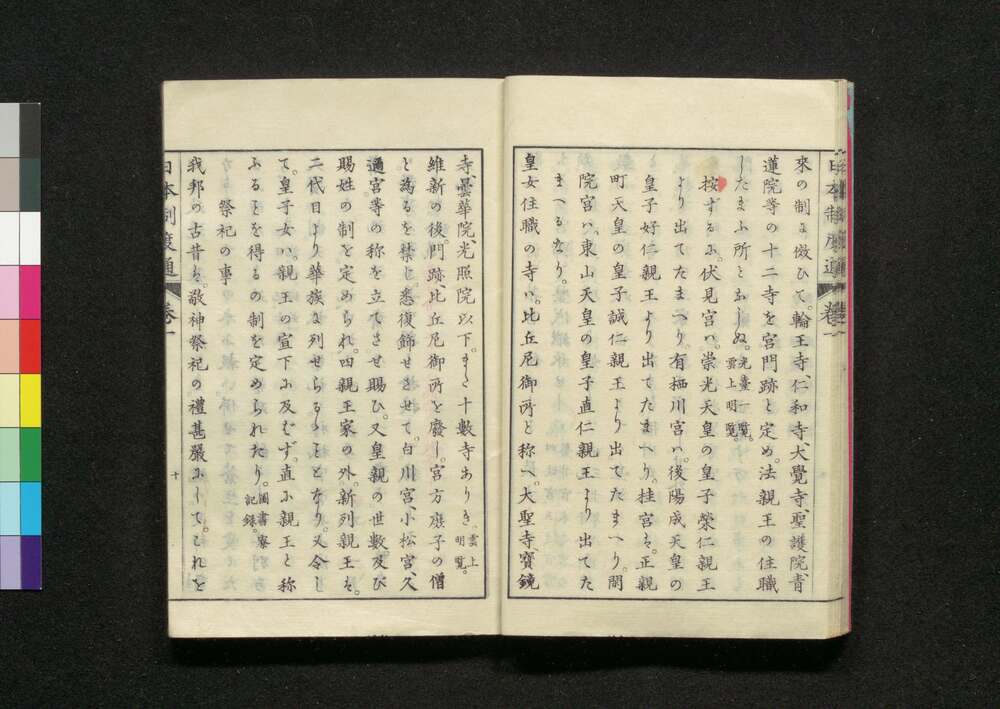 來の制に倣ひて。輪王寺、仁和寺、大覺寺、聖護院、青
蓮院等の十二寺を宮門跡と定め。法親王の住職
したまふ所となしぬ。光臺一覽。雲上明覽。
按ずるに。伏見宮ハ。崇光天皇の皇子榮仁親王
より出てたまへり。有栖川宮ハ。後陽成天皇の
皇子好仁親王より出てたまへり。桂宮は。正親
町天皇の皇子誠仁親王より出てたまへり。閑
院宮ハ。東山天皇の皇子直仁親王より出てた
まへるなり。
皇女住職の寺ハ。比丘尼御所と称へ。大聖寺、寶鏡
日本制度通 卷一
寺、曇華院、光照院以下。また十數寺ありき。雲上明覽。
維新の後。門跡、比丘尼御所を廢し。宮方庶子の僧
と為るを禁じ。悉復飾せさせて。白川宮、小松宮、久
邇宮等の称を立てさせ賜ひ。又皇親の世數及び
賜姓の制を定められ。四親王家の外。新列親王は。
二代目より華族に列せらるゝことゝなり。又令し
て。皇子女ハ。親王の宣下に及ばず。直に親王と称
ふることを得るの制を定められたり。圖書寮記録。
祭祀の事
我邦の古昔は。敬神祭祀の禮甚嚴にして。これを
日本制度通 卷一
十